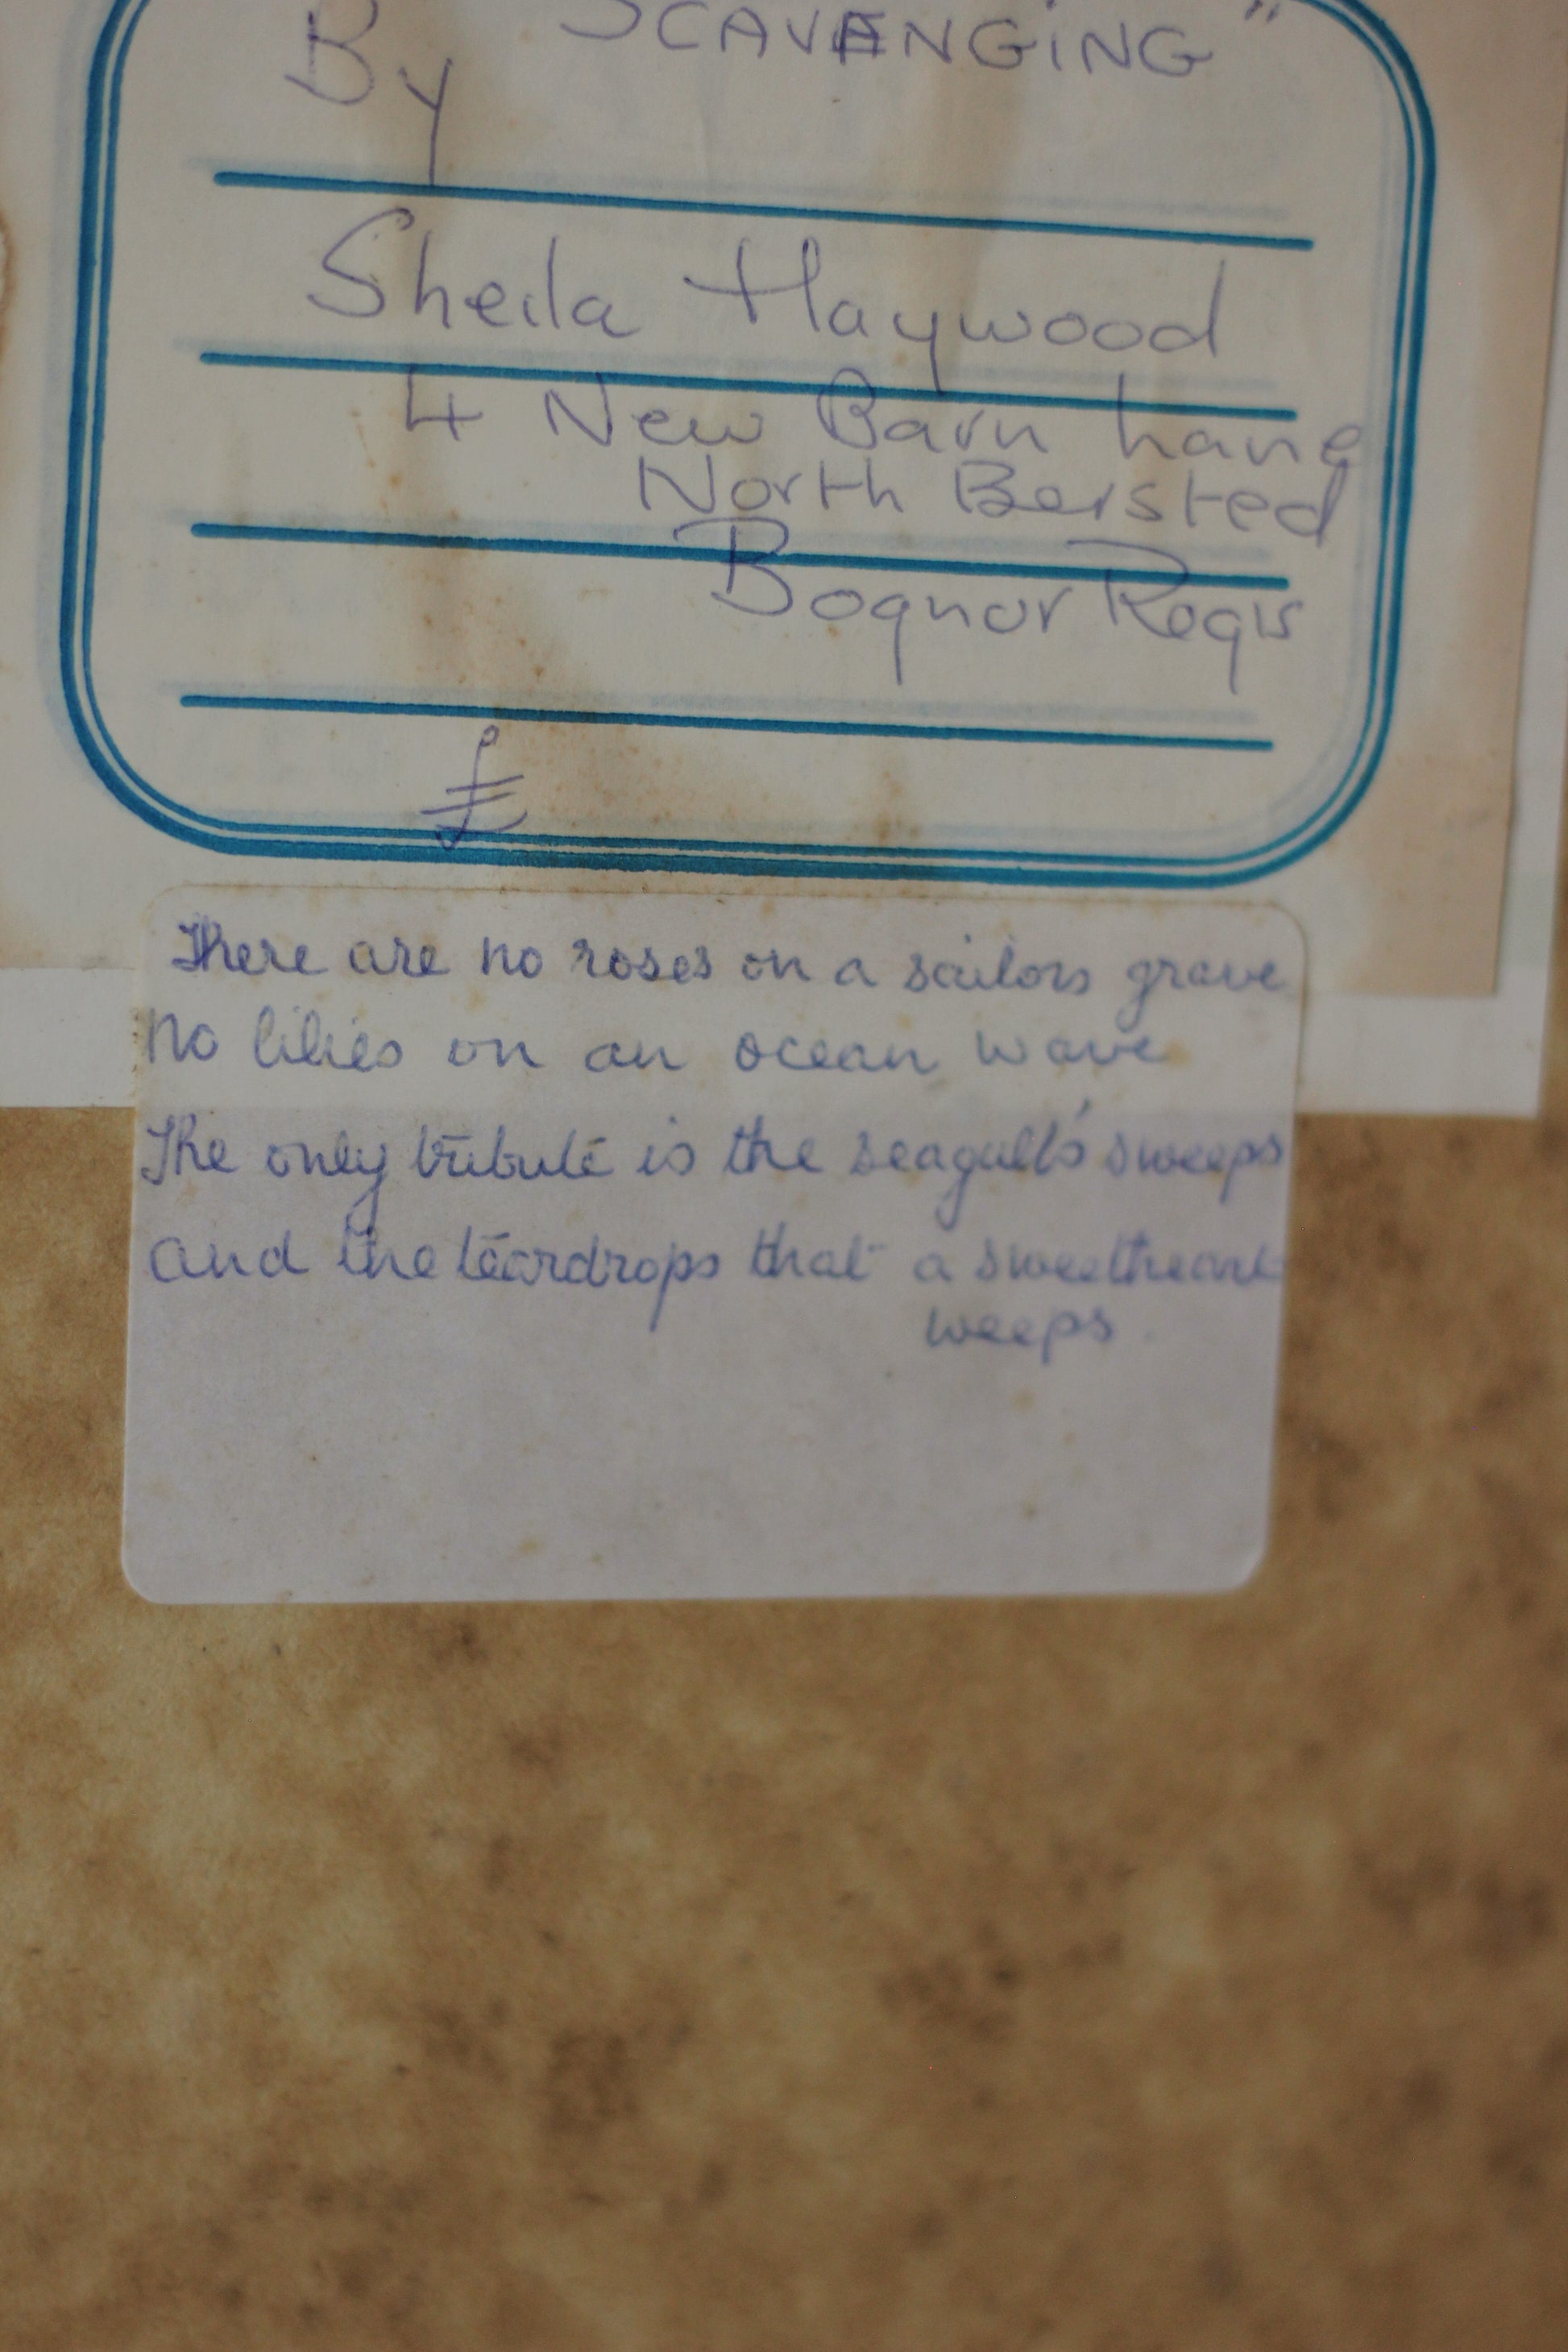 SCAVENGING"
By
Sheila Haywood
4 New Barn Lane
North Bersted
Bognor Regis
£
There are no roses on a sailors grave
No lilies on an ocean wave
The only tribute is the seagull's sweeps
and the teardrops that a sweetheart
weeps.